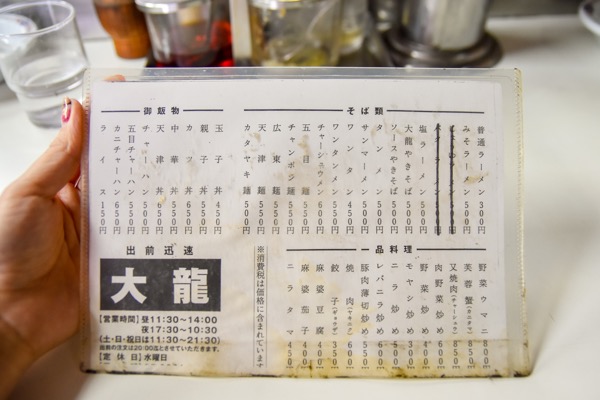 そば類
普通ラーメン 300円
みそラーメン 500円
塩ラーメン 500円
大龍やきそば 550円
ソースやきそば 550円
タンメン 500円
サンマーメン 500円
ワンタン 450円
ワンタンメン 550円
チャーシューメン 600円
五目麺 550円
チャンポン麺 550円
広東麺 550円
天津麺 550円
カタヤキ麺 500円
御飯物
玉子丼 450円
親子丼 550円
カツ丼 650円
中華丼 550円
天津丼 650円
チャーハン 500円
五目チャーハン 550円
カニチャーハン 550円
ライス 150円
一品料理
野菜ウマニ 800円
芙蓉蟹(カニタマ) 850円
叉焼肉(チャーシュウ)
肉野菜炒め
野菜炒め
モヤシ炒め
ニラ炒め
レバニラ炒め
豚肉薄切炒め
焼肉(ヤキニク)
餃子(ギョウザ)
麻婆豆腐 400
麻婆茄子 400
ニラタマ 450
※消費税は価格に含まれています
出前迅速
大龍
【営業時間】昼11:30~14:00
夜17:30~10:30
(土・日・祝日は11:30~21:30)
出前の注文は20:00迄とさせていただきます。
【定休日】水曜日